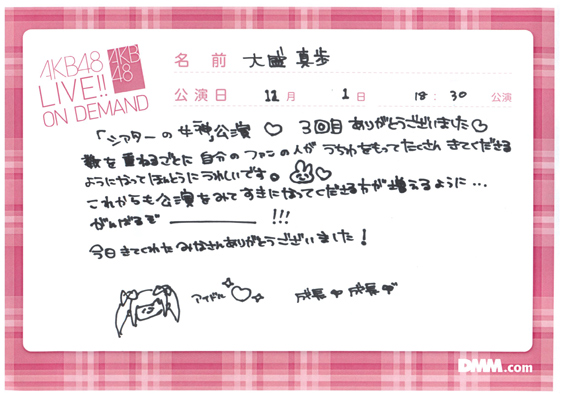 AKB48
LIVE!!
ON DEMAND
AKB
48
名前 大盛真歩
公演日 12月 1日 18:30 公演
「シアターの女神」公演 ♡ 3回目ありがとうございました♡
数を重ねるごとに自分のファンの人がうちわをもってたくさんきてくださる
ようになってほんとうにうれしいです。♡
これからも公演をみてすきになってくださる方が増えるように…
がんばるぞ ――― !!!
今日きてくれたみなさんありがとうございました!
アイドル♡
成長中成長中
DMM.com